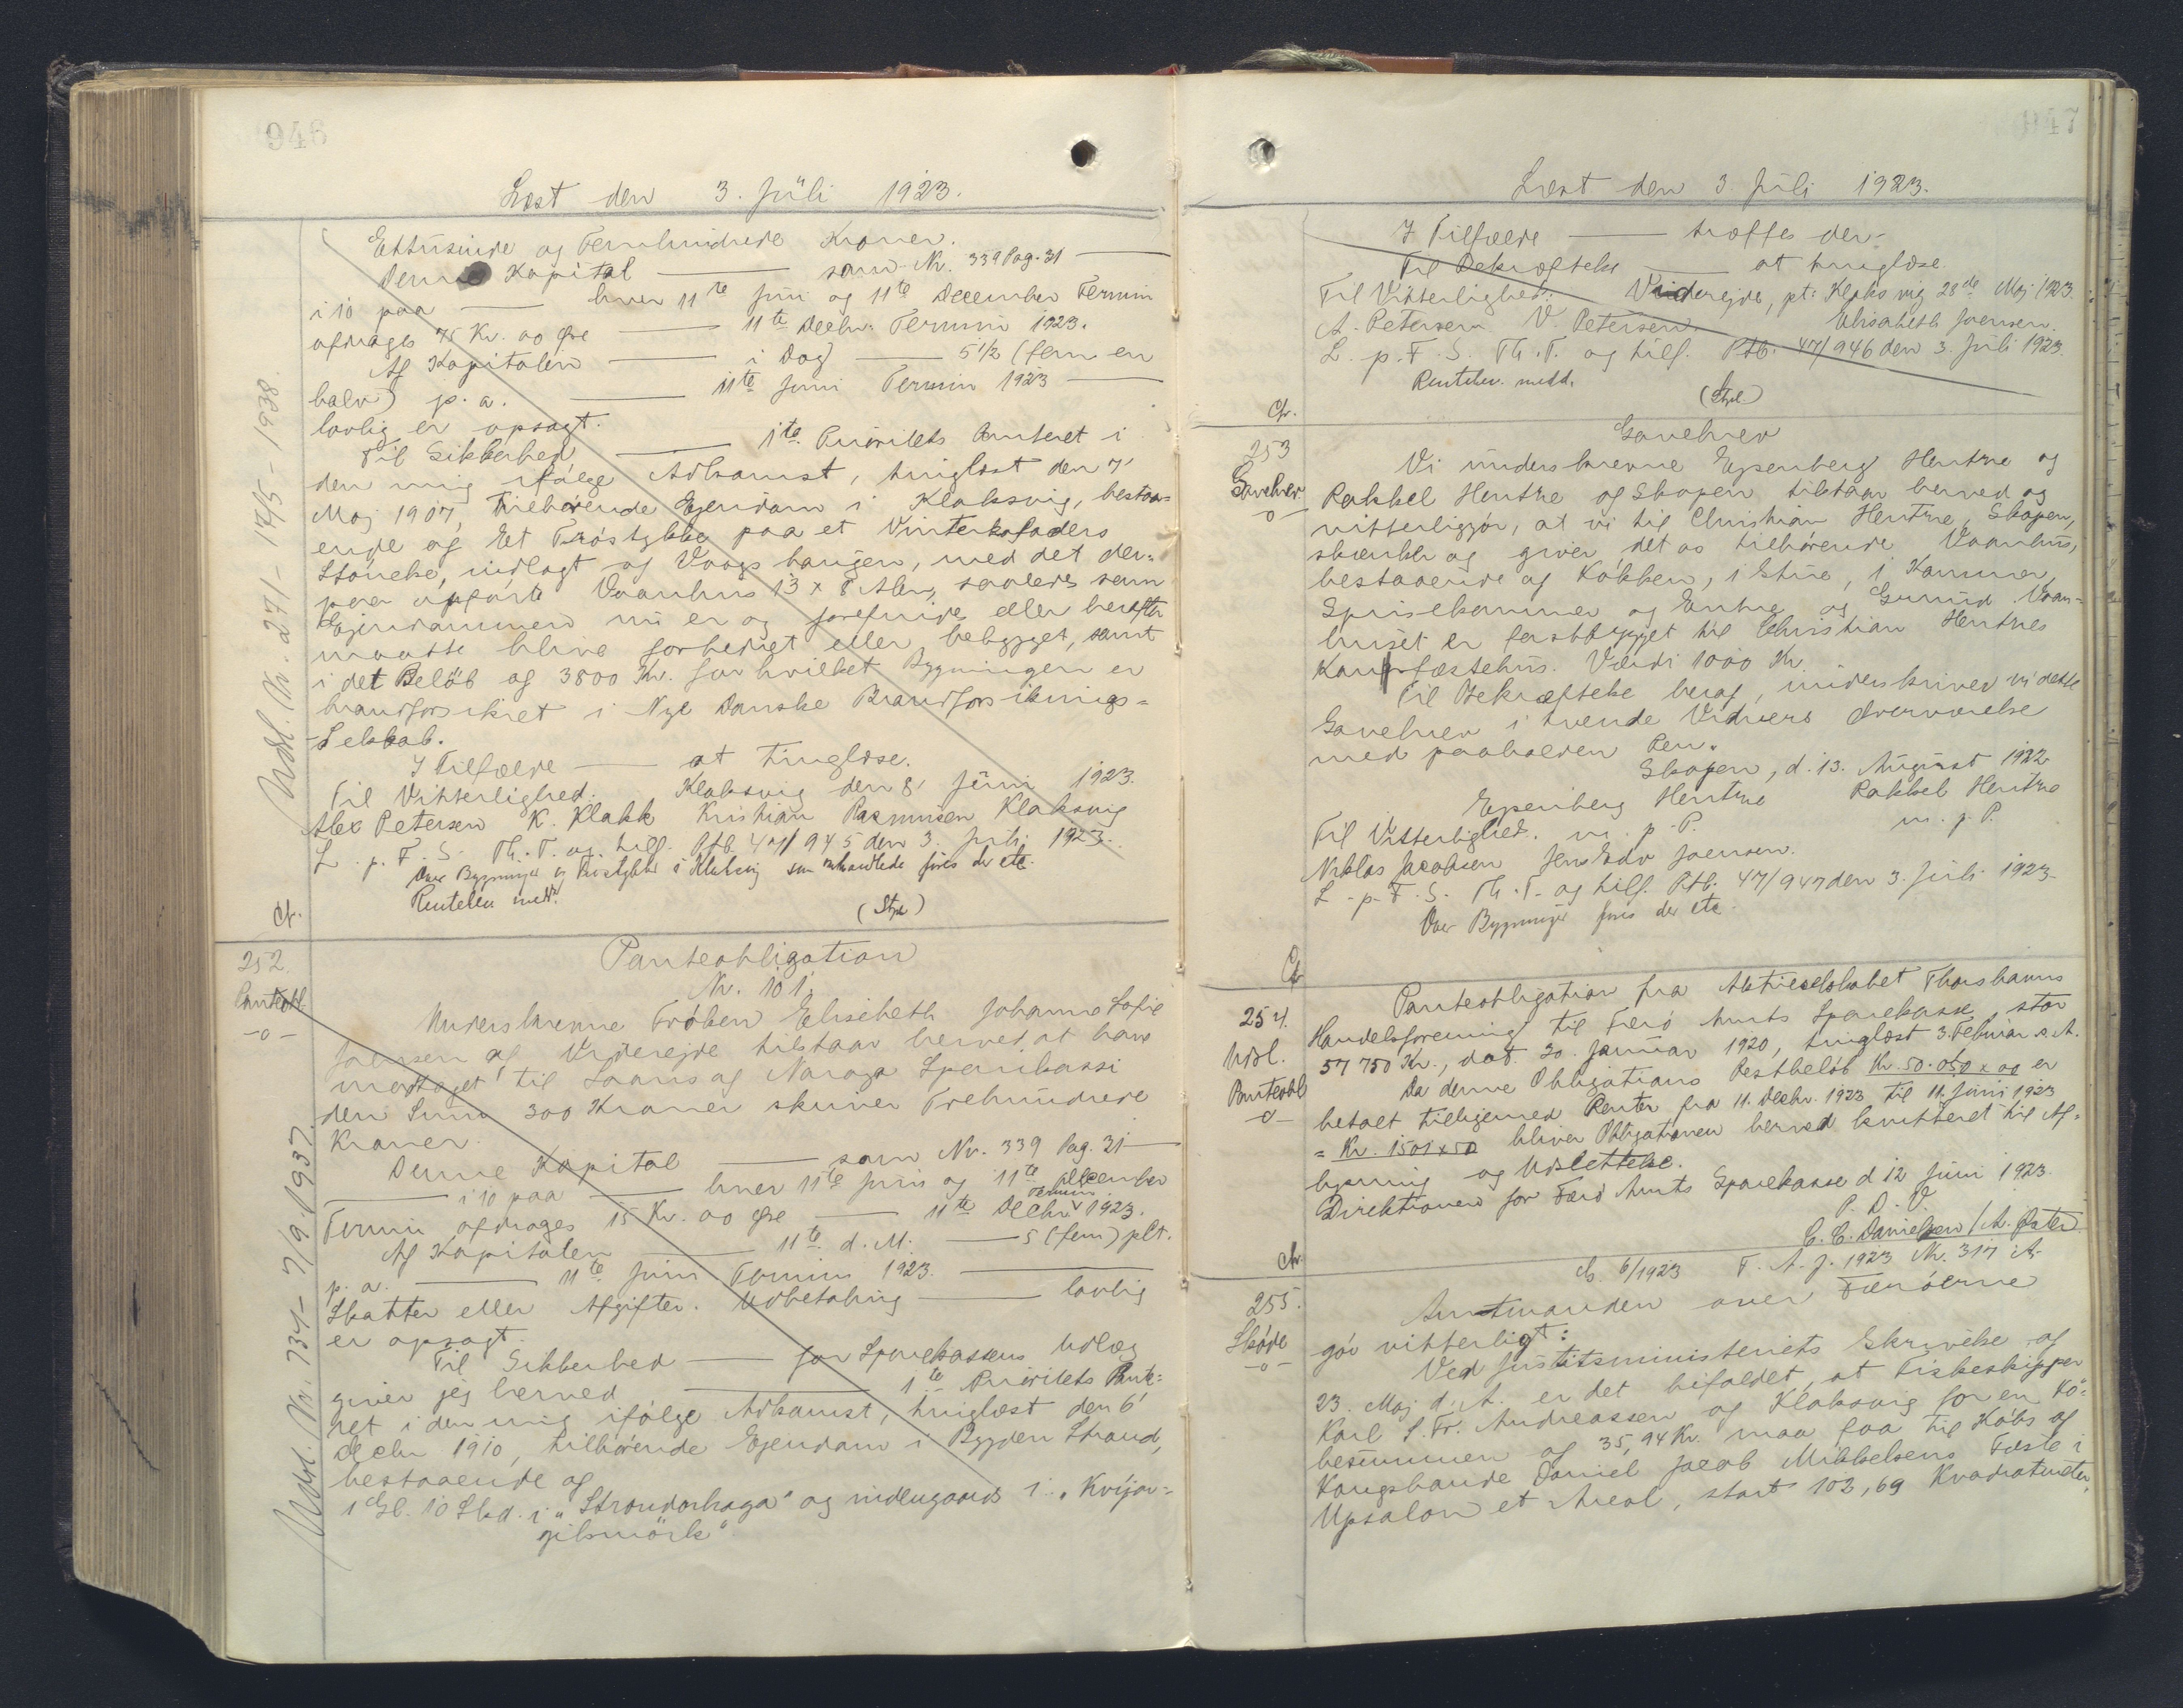 946
Læst den 3. Juli 1923.
Ettusinde og Femhundrede Kroner.
Denne Kapital —— som Nr. 339 Pag. 31 ——
i 10 paa —— hver 11te Juni og 11te December Termin
afdrages 75 Kr. 00 Øre —— 11te Decbr. Termin 1923.
Af Kapitalen —— i Dag —— 5 1/2 (fem en
halv) p. a. —— 11te Juni Termin 1923 ——
lovlig er opsagt.
Til Sikkerhed —— 1te Prioritets Panteret i
den mig ifølge Adkomst, tinglæst den 7'
Maj 1907, tilhørende Ejendom i Klaksvig, bestaa=
ende af Et Trøstykke paa et
Størrelse, indlagt af Vaags haugen, med det der=
paa opførte Vaanhus 13 x 8 Alen, saaledes som
Ejendommen nu er og forefindes eller herefter
maatte blive forbedret eller bebygget, samt
i det Beløb af 3800 Kr. for hvilket Bygningen er
brandforsikret i Nye Danske Brandforsikrings=
-Selskab.
I Tilfælde —— at tinglæse.
Til Vitterlighed. Klaksvig den 8' Juni 1923.
Alex Petersen K. Klakk Kristian Rasmussen Klaksvig
L. p. F. S. Th. T. og tilf. Ptb. 47/945 den 3. Juli 1923.
Over Bygninger og Trøstykke i Klaksvig som omhandlede føres der etc.
Rentebev. medd.
(Styl.)
Cfr.
Udsl. Nr. 271 - 17/5 - 1938.
252.
Panteobl.
-o-
Panteobligation
Nr. 101.
Underskrevne Frøken Elisabeth Johanne Sofie
Joensen af Viderejde tilstaar herved at have
modtaget til Laans af Nordoya Sparikassi
den Sum 300 Kroner skriver Trehundrede
Kroner.
Denne Kapital —— som Nr. 339 Pag. 31 ——
—— i 10 paa —— hver 11te Juni og 11te December
Termin afdrages 15 Kr. 00 Øre —— 11te Decbr. Termin 1923.
Af Kapitalen —— 11te d. M. —— 5 (fem) pCt.
p. a. —— 11te Juni Termin 1923. ——
Skatter eller Afgifter. Udbetaling —— lovlig
er opsagt.
Til Sikkerhed —— for Sparekassens Udlæg
giver jeg herved —— 1te Prioritets Pante=
ret i den mig ifølge Adkomst, tinglæst den 6'
Decbr 1910, tilhørende Ejendom i Bygden Strand,
bestaaende af
1 Gl. 10 Skd. i "Strondarhaga" og indengaards i "Kvijar=
gilsmørk".
Udsl. Nr. 734 - 7/9 1937.
947
Læst den 3. Juli 1923.
I Tilfælde —— træffes der-
Til Bekræftelse —— at tinglæse.
Til Vitterlighed: Viderejde, pt. Klaksvig 28de Maj 1923.
A. Petersen. V. Petersen. Elisabeth Joensen.
L. p. F. S. Th. T. og tilf. Ptb. 47/946 den 3. Juli 1923.
Rentebev. medd.
(Styl.)
Cfr.
253
Gavebrev
-o-
Gavebrev
Vi underskrevne Espenberg Hentze og
Rakkel Hentze af Skopen tilstaar herved og
vitterliggør, at vi til Christian Hentze, Skopen,
skænker og giver det os tilhørende Vaanhus,
bestaaende af Køkken, 1 Stue, 1 Kammer,
Spisekammer og Entre og Grund. Vaan=
huset er fastbygget til Christian Hentzes
Kongsfæstehus. Værdi 1000 Kr.
Til Bekræftelse heraf, underskriver vi dette
Gavebrev i tvende Vidners Overværelse
med paaholden Pen.
Skopen, d. 13. August 1922
Espenberg Hentze Rakkel Hentze
Til Vitterlighed. m. p. P. m. p. P.
Niklas Jacobsen Jens Edv Joensen.
L. p. F. S. Th. T. og tilf. Ptb. 47/947 den 3. Juli 1923.
Over Bygninger føres der etc.
Cfr.
254.
Udsl.
Panteobl
-o-
Panteobligation fra Aktieselskabet Thorshavns
Handelsforening til Færø Amts Sparekasse, stor
57 750 Kr., dat. 30. Januar 1920, tinglæst 3. Februar s. A.
Da denne Obligations Restbeløb Kr. 50.050 x 00 er
betalt tilligemed Renter fra 11. Decbr. 1923 til 11. Juni 1923
= Kr. 1501 x 50 bliver Obligationen herved kvitteret til Af=
lysning og Udslettelse.
Direktionen for Færø Amts Sparekasse d 12 Juni 1923.
P. D. V.
C. C. Danielsen / A. Øster
Cfr.
255.
Skøde
-o-
6/1923 F. A. J. 1923 Nr. 317 A.
Amtmanden over Færøerne
gør vitterligt:
Ved Justitsministeriets Skrivelse af
23. Maj d. A. er det bifaldet, at Fiskeskipper
Karl S. Fr. Andreassen af Klaksvig for en Kø=
besummen af 35,94 Kr. maa faa til Købs af
Kongsbonde Daniel Jacob Mikkelsens Fæste i
Upsalon et Areal, stort 102,69 Kvadratmeter,